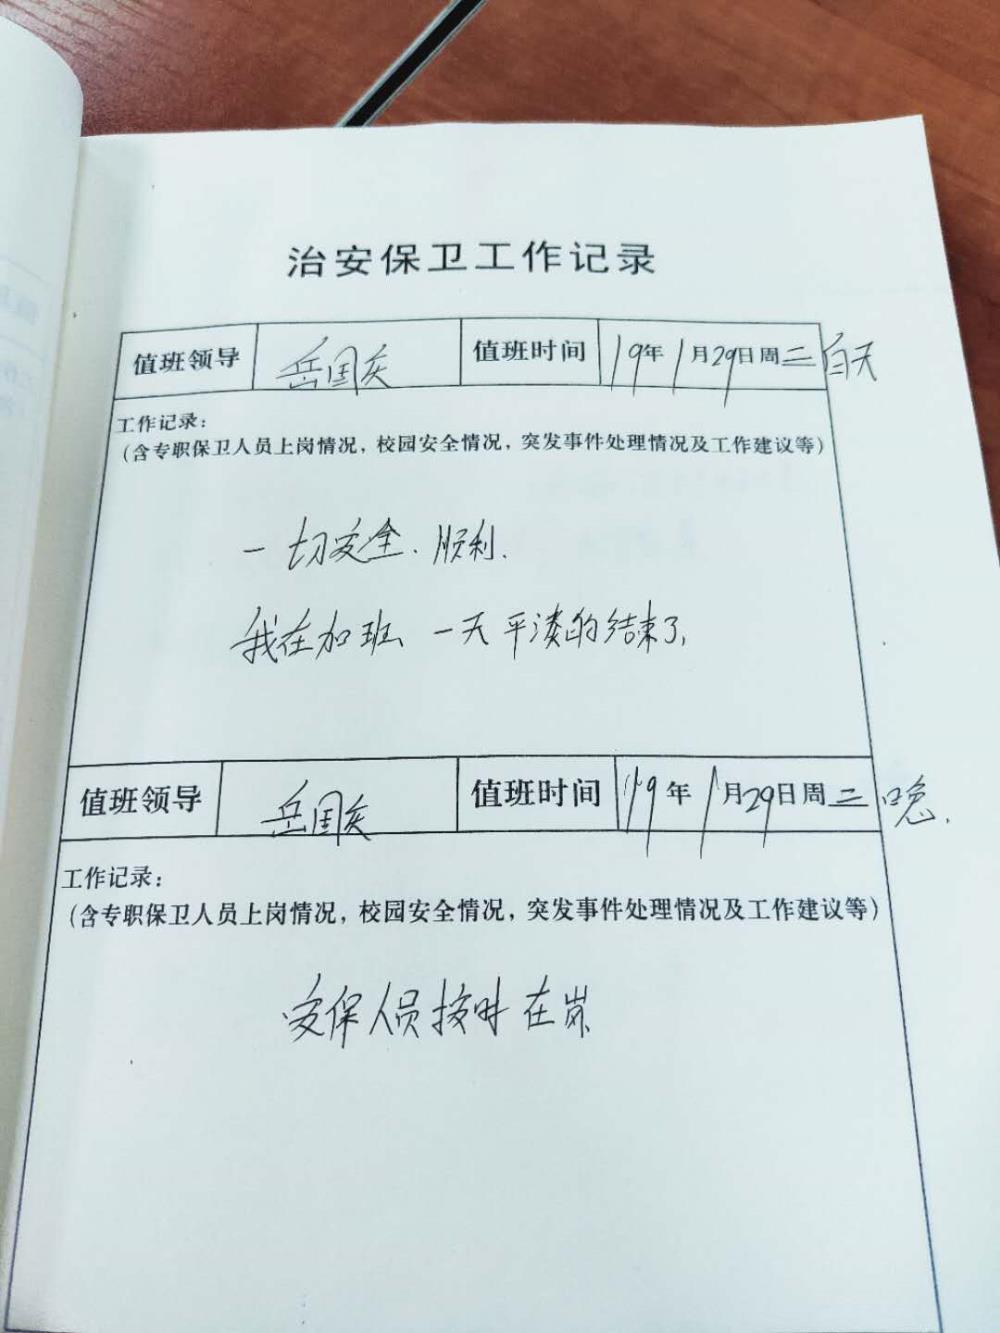 治安保卫工作记录
值班领导 岳国庆 值班时间 19年1月29日周二 白天
工作记录：
（含专职保卫人员上岗情况，校园安全情况，突发事件处理情况及工作建议等）
一切安全．顺利．
我在加班 一天平凑的结束了，
值班领导 岳国庆 值班时间 19年1月29日周二 晚．
工作记录：
（含专职保卫人员上岗情况，校园安全情况，突发事件处理情况及工作建议等）
安保人员按时在岗